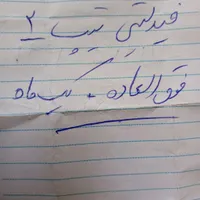 فیدلتی تیپ ۲
فوق العاده - یک ماه